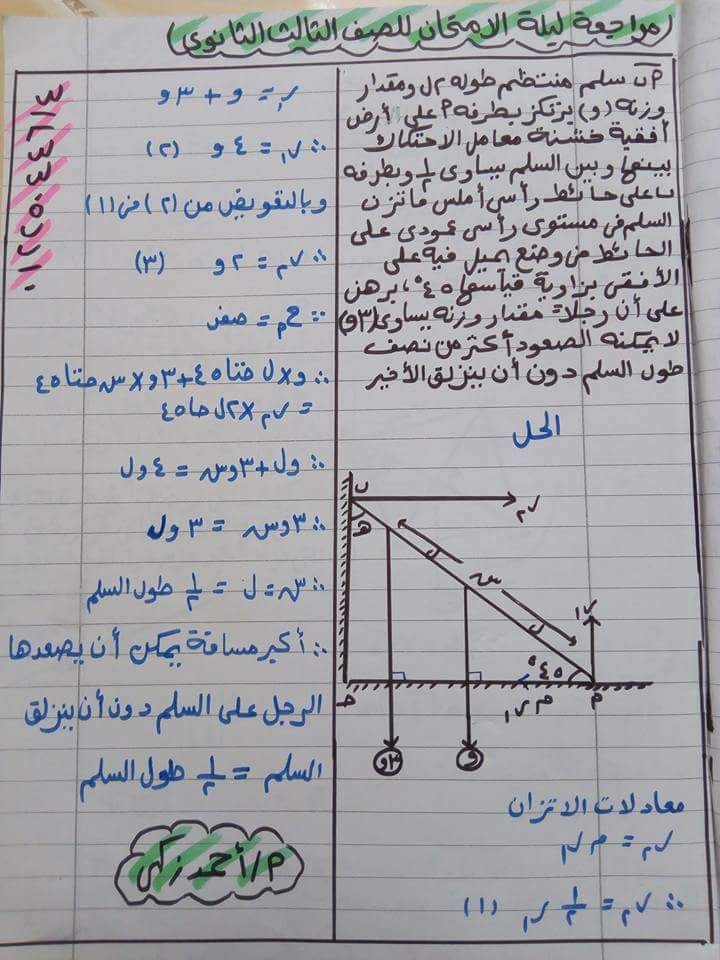 (مراجعة ليلة الامتحان للصف الثالث الثانوى)
٩ب سلم منتظم طوله ٢ل ومقدار
وزنه (و) يرتكز بطرفه ٩ على أرض
أفقية خشنة معامل الاحتكاك
بينها وبين السلم يساوى ١/٢ وبطرفه
ب على حائط رأسى أملس فاتزن
السلم فى مستوى رأسى عمودى على
الحائط من وضع يميل فيه على
الأفقى بزاوية قياسها ٤٥°، برهن
على أن رجلاً مقدار وزنه يساوى (٣و)
لا يمكنه الصعود أكثر من نصف
طول السلم دون أن ينزلق الأخير
الحل
ب
ر٢
ه
ل
س
ل
ر١
٤٥°
ح
م ر١
٩
٣و
و
معادلات الاتزان
ر٢ = م ر١
∴ ر٢ = ١/٢ ر١ (١)
ر١ = و + ٣و
∴ ر١ = ٤و (٢)
وبالتعويض من (٢) فى (١)
∴ ر٢ = ٢و (٣)
∵ ج٩ = صفر
∴ و×ل حتا ٤٥ + ٣و×س حتا ٤٥
= ر٢×٢ل حا ٤٥
∴ ول + ٣وس = ٤ول
∴ ٣وس = ٣ول
∴ س = ل = ١/٢ طول السلم
∴ أكبر مسافة يمكن أن يصعدها
الرجل على السلم دون أن ينزلق
السلم = ١/٢ طول السلم
م/أحمد زكى